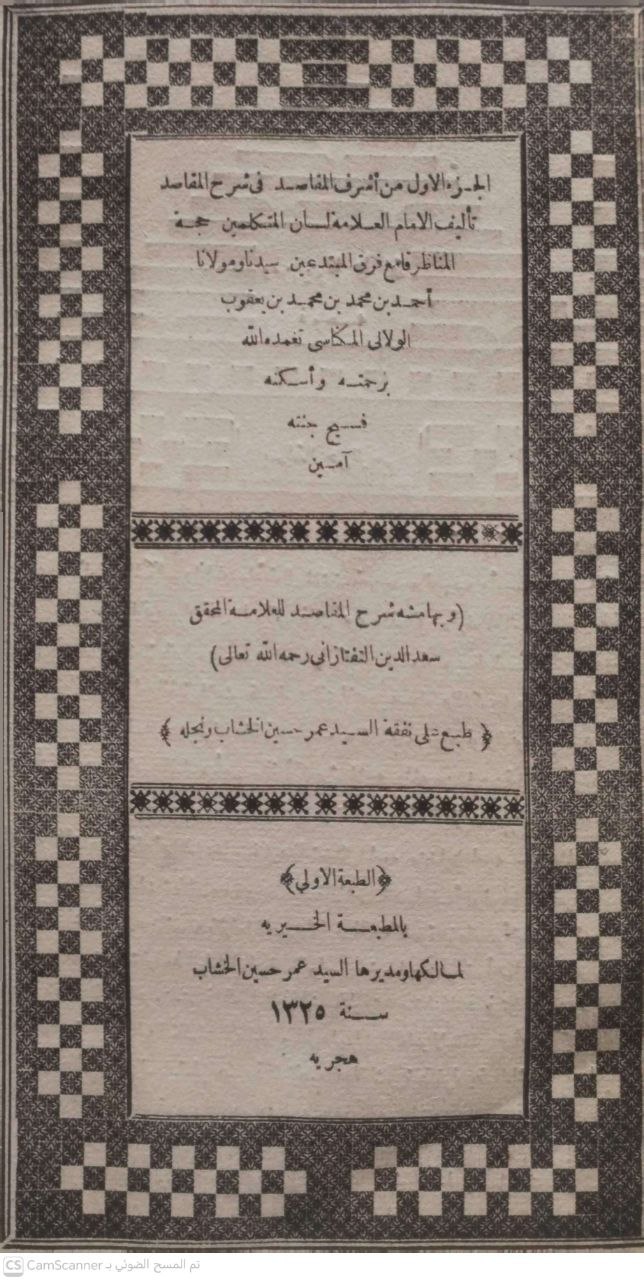 الجزء الاول من أشرف المقاصد فى شرح المقاصد
تأليف الامام العلامة لسان المتكلمين حجة
المناظر قامع فرق المبتدعين سيدنا ومولانا
أحمد بن محمد بن محمد بن يعقوب
الولالى المكناسى تغمده الله
برحمته وأسكنه
فسيح جنته
آمين
(و بهامشه شرح المقاصد للعلامة المحقق
سعد الدين التفتازانى رحمه الله تعالى)
﴿ طبع على نفقة السيد عمر حسين الخشاب ونجله ﴾
﴿الطبعة الاولى﴾
بالمطبعة الخيريه
لمالكها ومديرها السيد عمر حسين الخشاب
سنة ١٣٢٥
هجريه
CS CamScanner تم المسح الضوئي بـ